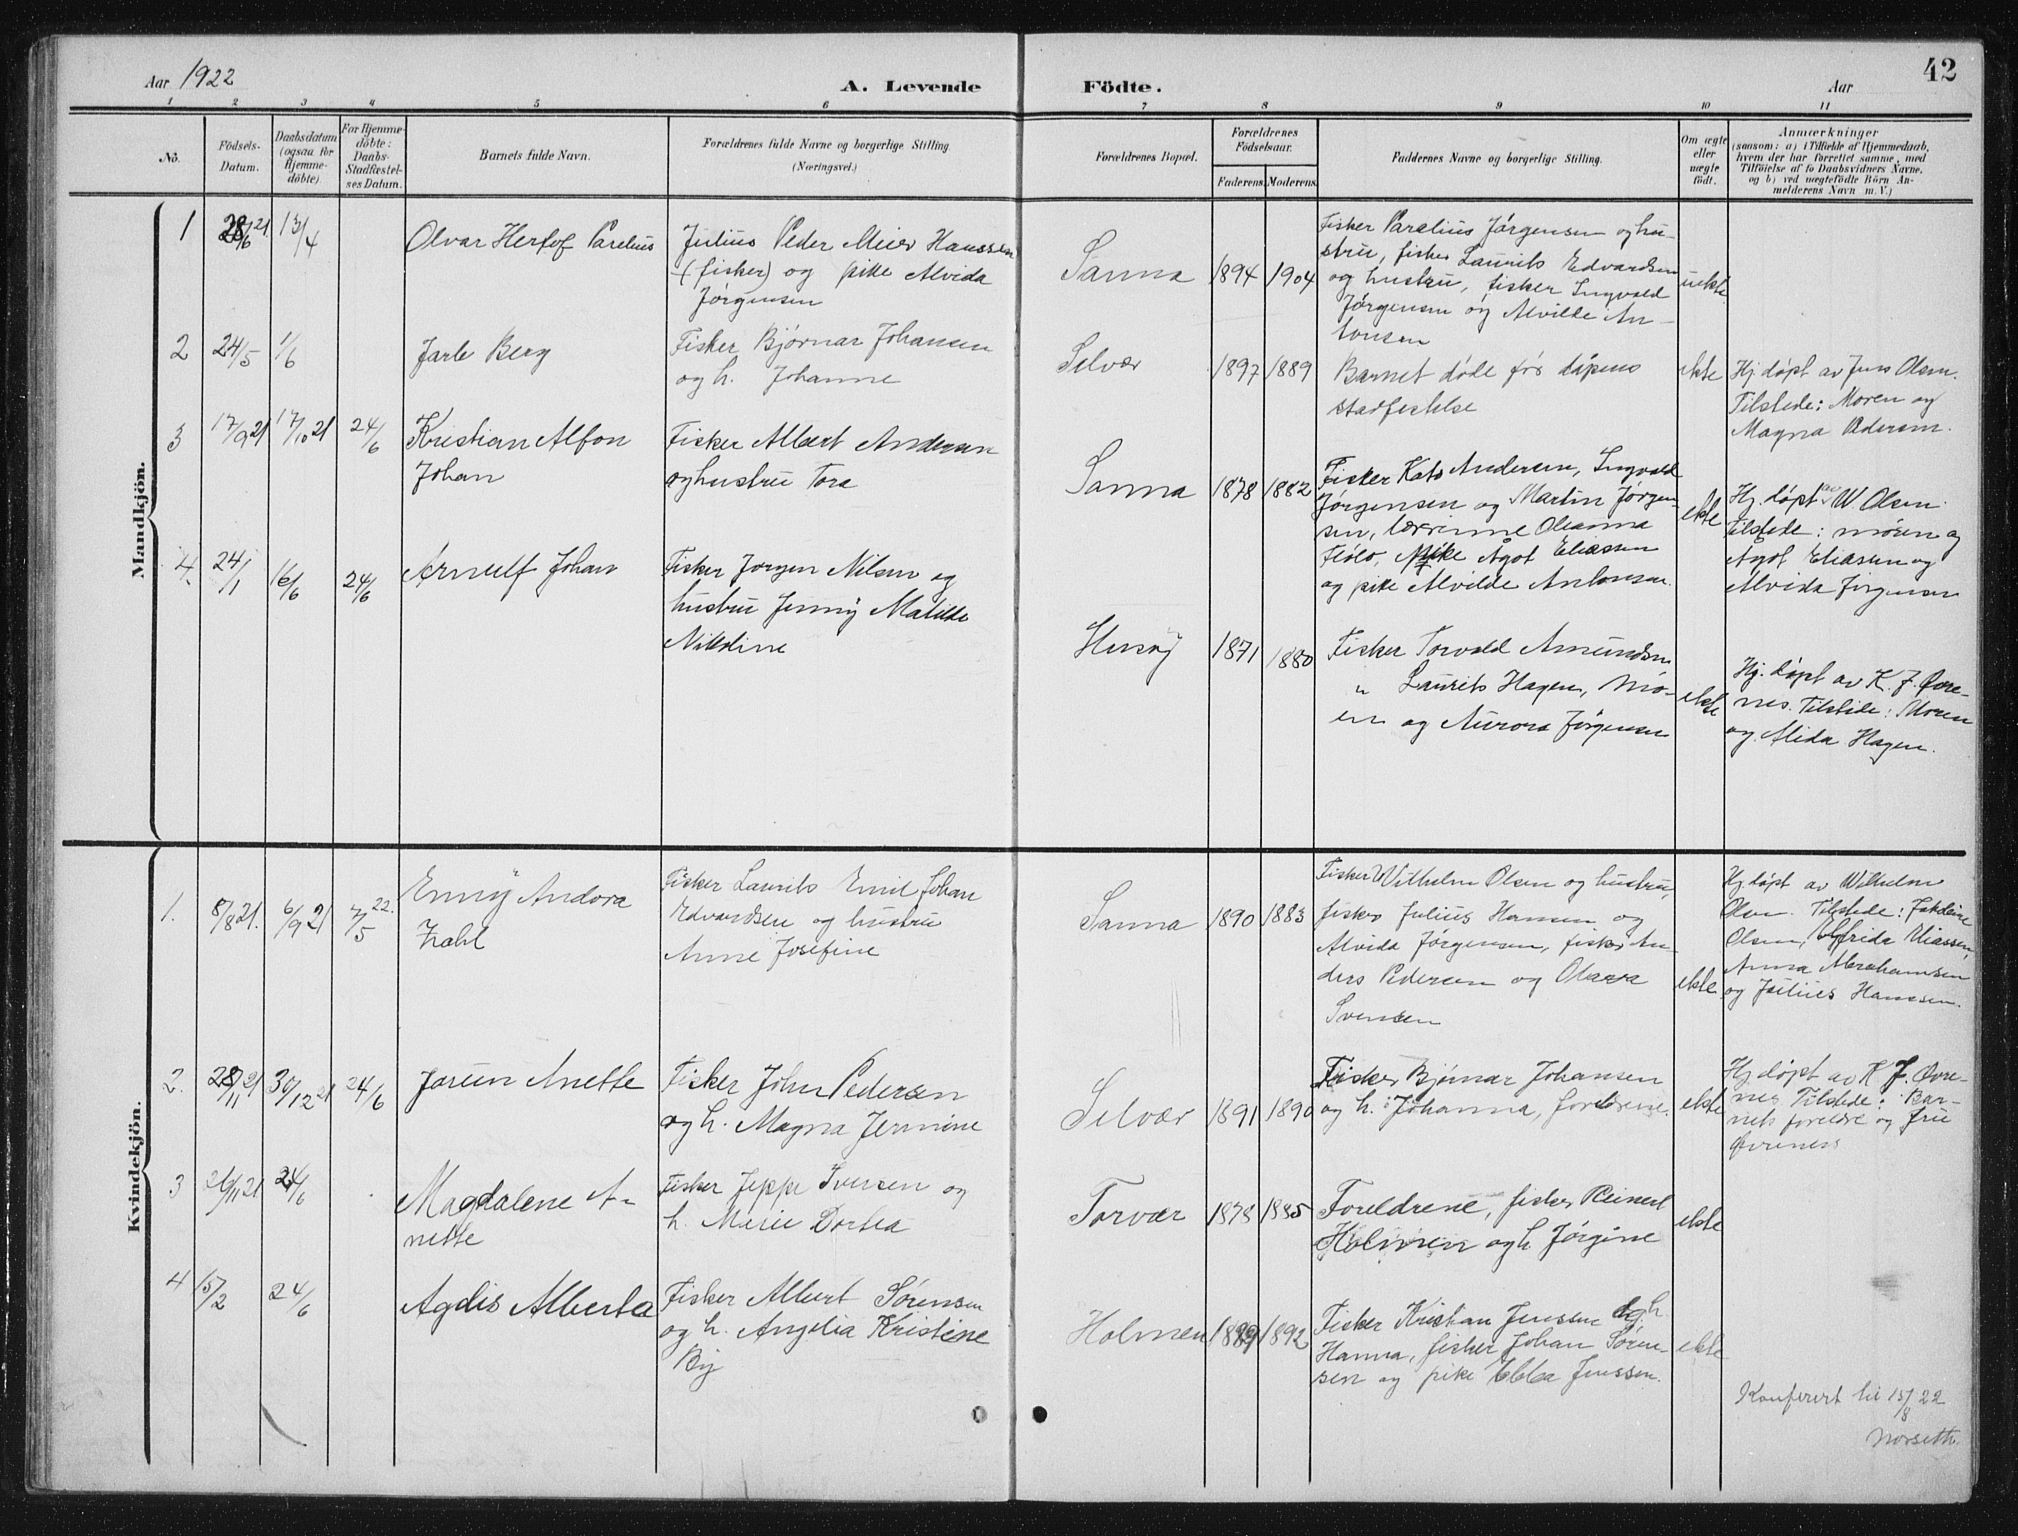 Aar 1922
A. Levende
Födte.
Aar
42
1 2 3 4 5 6 7 8 9 10 11
No.
Födsels-
Datum.
Daabsdatum
(ogsaa for
Hjemme-
döbte).
For Hjemme-
döbte:
Daabs-
Stadfæstel-
ses Datum.
Barnets fulde Navn.
Forældrenes fulde Navne og borgerlige Stilling
(Næringsvei.)
Forældrenes Bopæl.
Forældrenes
Födselsaar.
Faderens.
Moderens.
Faddernes Navne og borgerlige Stilling.
Om ægte
eller
uægte
födt.
Anmærkninger
(saasom: a) i Tilfælde af Hjemmedaab,
hvem der har forrettet samme, med
Tilföielse af to Daabsvidners Navne,
og b) ved uægtefödte Börn An-
melderens Navn m. V.)
Mandkjön.
1
28/6 21
13/4
Olvar Hertof Parelius
Julius Peder Meier Hanssen
(fisker) og pike Alvida
Jørgensen
Sanna
1894
1904
Fisker Parelius Jørgensen og hu-
stru, fisker Laurits Edvardsen
og hustru, fisker Ingvald
Jørgensen og Alvilde An-
tonsen
uekte
2
24/5
1/6
Jarle Berg
Fisker Bjørnar Johansen
og h. Johanne
Selvær
1897
1889
Barnet døde før dåpens
stadfestelse
ekte
Hj. døpt av Jens Olsen.
Tilstede: Moren og
Magna Pedersen.
3
17/9 21
17/10 21
24/6
Kristian Alfon
Johan
Fisker Albert Andersen
og hustru Tora
Sanna
1878
1882
Fisker Kato Andersen, Ingvald
Jørgensen og Martin Jørgen-
sen, lærerinne Oleanna
Fiölo, pike Ågot Eliassen
og pike Alvilde Antonsen.
ekte
Hj. døpt av W. Olsen.
Tilstede: moren og
Ågot Eliasen og
Alvida Jørgensen
4.
24/1
16/6
24/6
Arnulf Johan
Fisker Jørgen Nilsen og
hustru Jenny Matilde
Nikoline
Husøy
1871
1880
Fisker Torvald Amundsen
" Laurits Hagen, Mo-
ren og Aurora Jørgensen
ekte
Hj. døpt av K. J. Øvre-
nes. Tilstede: Moren
og Alida Hagen.
Kvindekjön.
1.
8/8 21.
6/9 21
7/5 22.
Enny Andora
Zahl
Fisker Laurits Emil Johan
Edvardsen og hustru
Anne Josefine
Sanna
1890
1883
Fisker Wilhelm Olsen og hustru,
fisker Julius Hansen og
Alvida Jørgensen, fisker An-
ders Pedersen og Olava
Svensen
ekte
Hj. døpt av Wilhelm
Olsen. Tilstede: Jakobine
Olsen, Elfrida Eliassen,
Anna Abrahamsen
og Julius Hanssen.
2.
28/11 21
30/12 21
24/6
Jorun Anette
Fisker John Pedersen
og h. Magna Jermine
Selvær
1891
1890
Fisker Bjørnar Johansen
og h. Johanna, foreldrene.
ekte
Hj. døpt av K. J. Øvre-
nes Tilstede: Bar-
nets foreldre og fru
Øvreness
3
26/11 21
24/6
Magdalene A-
nette
Fisker Jeppe Iversen og
h. Marie Dortea
Torvær
1878
1885
Foreldrene, fisker Reinert
Holmen og h. Jørgine
ekte
4
15/2
24/6
Agdis Alberta
Fisker Albert Sørensen
og h. Angelia Kristine
By
Holmen
1889
1892
Fisker Kristian Jenssen og h.
Hanna, fisker Johan Søren-
sen og pike Ebba Jenssen.
ekte
Konferert til 15/8 22
Norseth.